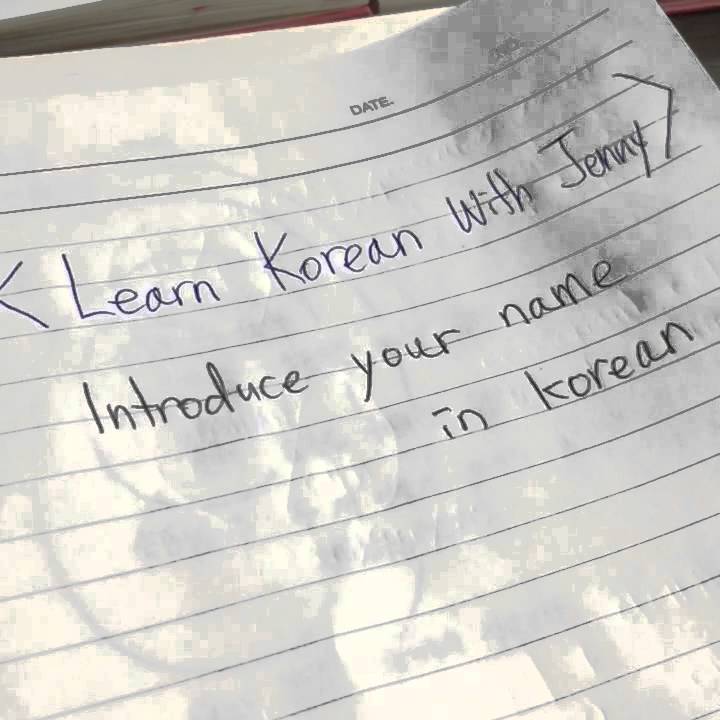 NO.
DATE.
< Learn Korean With Jenny >
Introduce your name
in korean